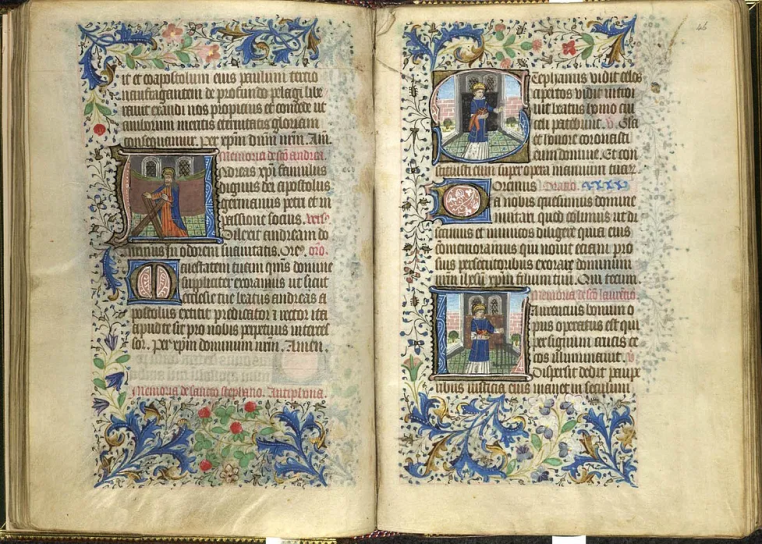 it et coapostolum eius paulum tercio
naufragantem de profundo pelagi libe
ravit exaudi nos propicius et concede ut
amborum meritis eternitatis gloriam
consequamur. per xpm dnm nrm. Am.
Memoria de sco andrea.
Andreas xpi famulus
dignus dei apostolus
germanus petri et in
passione socius. vers9
Dilexit andream do
minus in odorem suavitatis. Ore9 oro.
Maiestatem tuam quis domine
suppliciter exoramus ut sicut
ecclesie tue beatus andreas a
postolus extitit predicator z rector ita
apud te sit pro nobis perpetuus interces
sor. per xpm dominum nrm. Amen.
Memoria de sancto stephano. Antiphona.
46
Stephanus vidit celos
apertos vidit introi
vit beatus homo cui
celi patebunt. v. Gla
et honore coronasti
eum domine. Et con
stituisti eum super opera manuum tuar.
Oremus Oratio.
Da nobis quesumus domine
imitari quod colimus ut di
scamus et inimicos diligere quia eius
commemoramus qui novit eciam pro
suis persecutoribus exorare dominum
nrm ihesum xpm filium tuum. Qui tecum.
Memoria de sco laurecio.
Laurencius bonum o
pus operatus est qui
per signum crucis ce
cos illuminavit. v
Dispersit dedit paupe
ribus iusticia eius manet in seculum